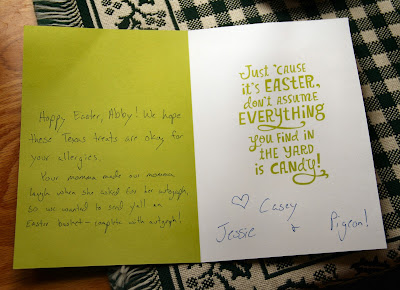 Happy Easter, Abby! We hope
these Texas treats are okay for
your allergies.
Your momma made our momma
laugh when she asked for her autograph,
so we wanted to send y'all an
Easter basket – complete with autograph!
Just 'cause
it's EASTER,
don't assume
EVERYTHING
you find in
the yard
is CANDY!
♡ Casey
Jessie & Pigeon!